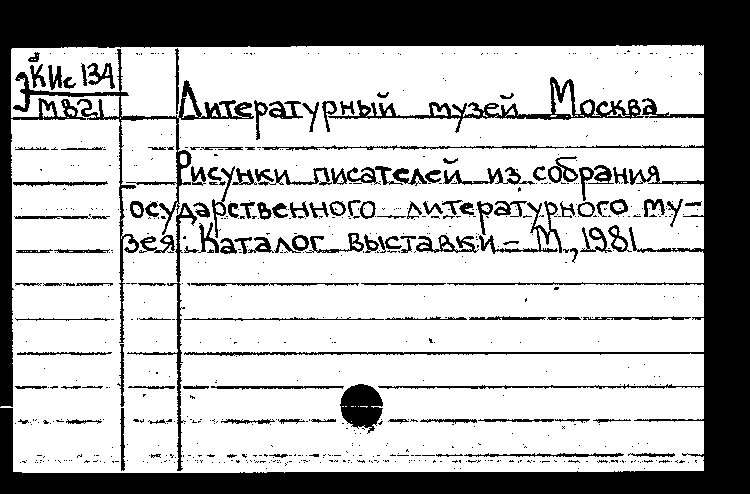 КИс 134
М821
Литературный музей Москва
Рисунки писателей из собрания
Государственного литературного му-
зея: Каталог выставки – М, 1981